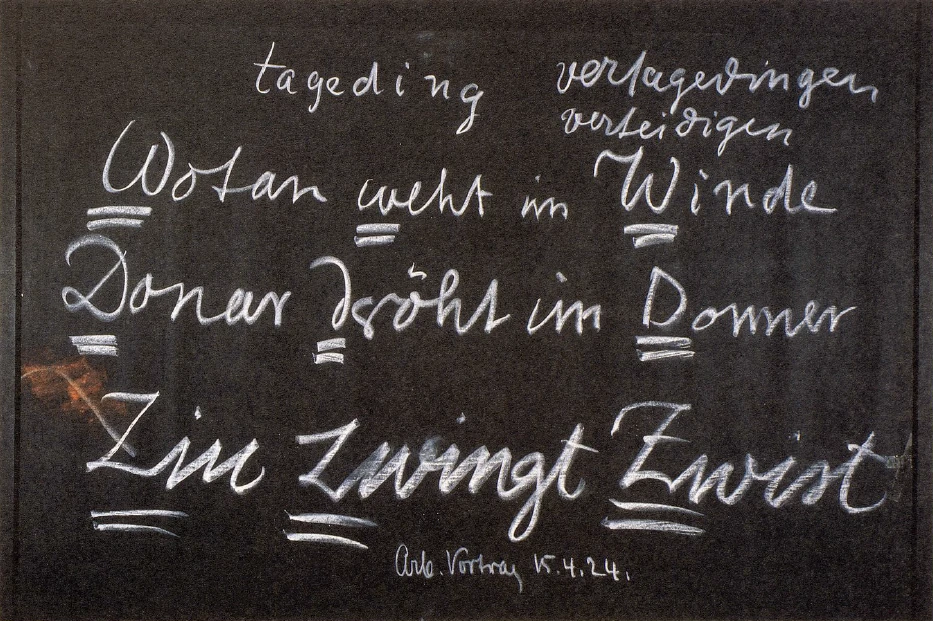 tageding vertagedingen
verteidigen
Wotan weht im Winde
Donar dröht im Donner
Ziu zwingt Zwist
Arb. Vortrag 15.4.24.